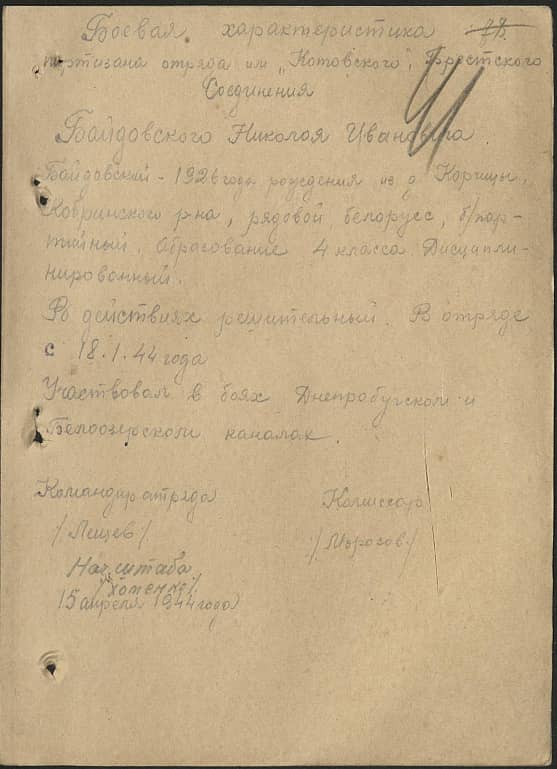 Боевая характеристика
партизана отряда им. „Котовского", Брестского
Соединения
Байдовского Николая Ивановича
Байдовский - 1926 года рождения из д. Корицы,
Кобринского р-на, рядовой, белорусс, б/пар-
тийный. Образование 4 класса. Дисципли-
нированный.
В действиях решительный. В отряде
с 18.1.44 года
Участвовал в боях Днепробугском и
Белоозерском каналах.
Командир отряда Комиссар
/Лещев/ /Морозов/
Нач. штаба
15 апреля 1944 года